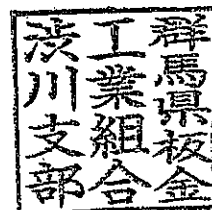 群馬県板金
工業組合
渋川支部